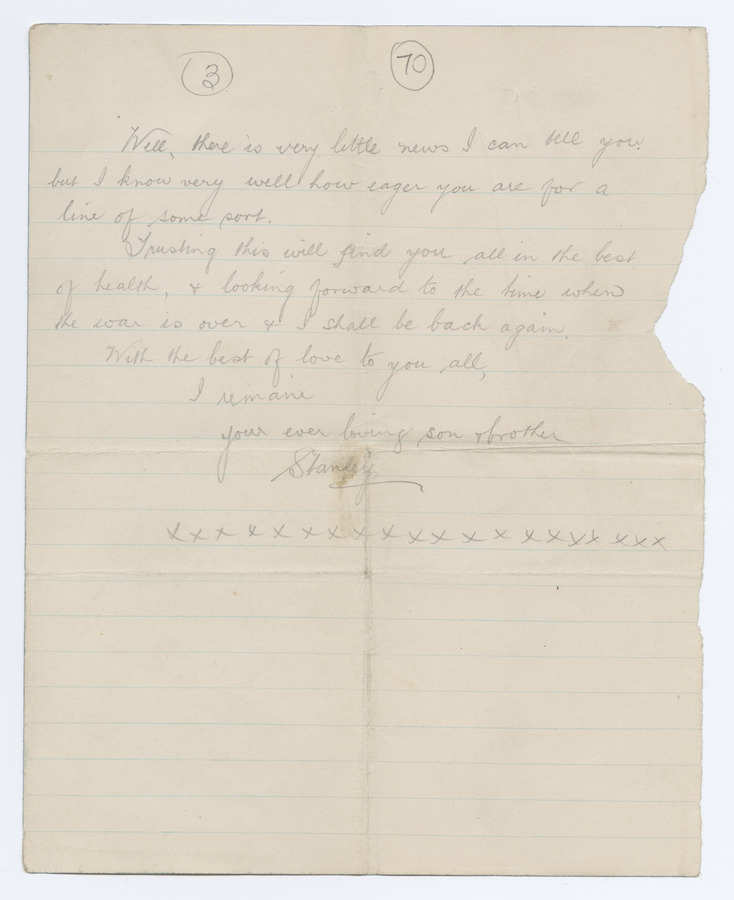 3 70
Well, there is very little news I can tell you
but I know very well how eager you are for a
line of some sort.
Trusting this will find you all in the best
of health, & looking forward to the time when
the war is over & I shall be back again.
With the best of love to you all,
I remain
your ever loving son & brother
Stanley
x x x x x x x x x x x x x x x x x x x x